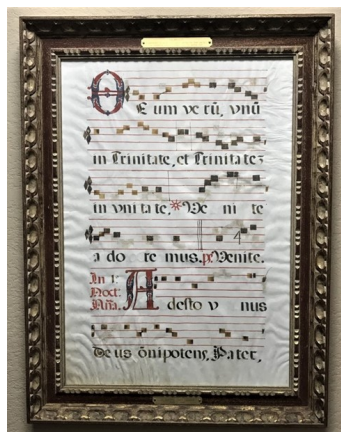 DEum verũ, vnũ
in Trinitate, et Trinitatẽ
in vnitate, * Ve ni te
a do re mus. ps Venite.
In 1:
Noct:
Aña. Adesto v nus
Deus õnipotens, Pater,